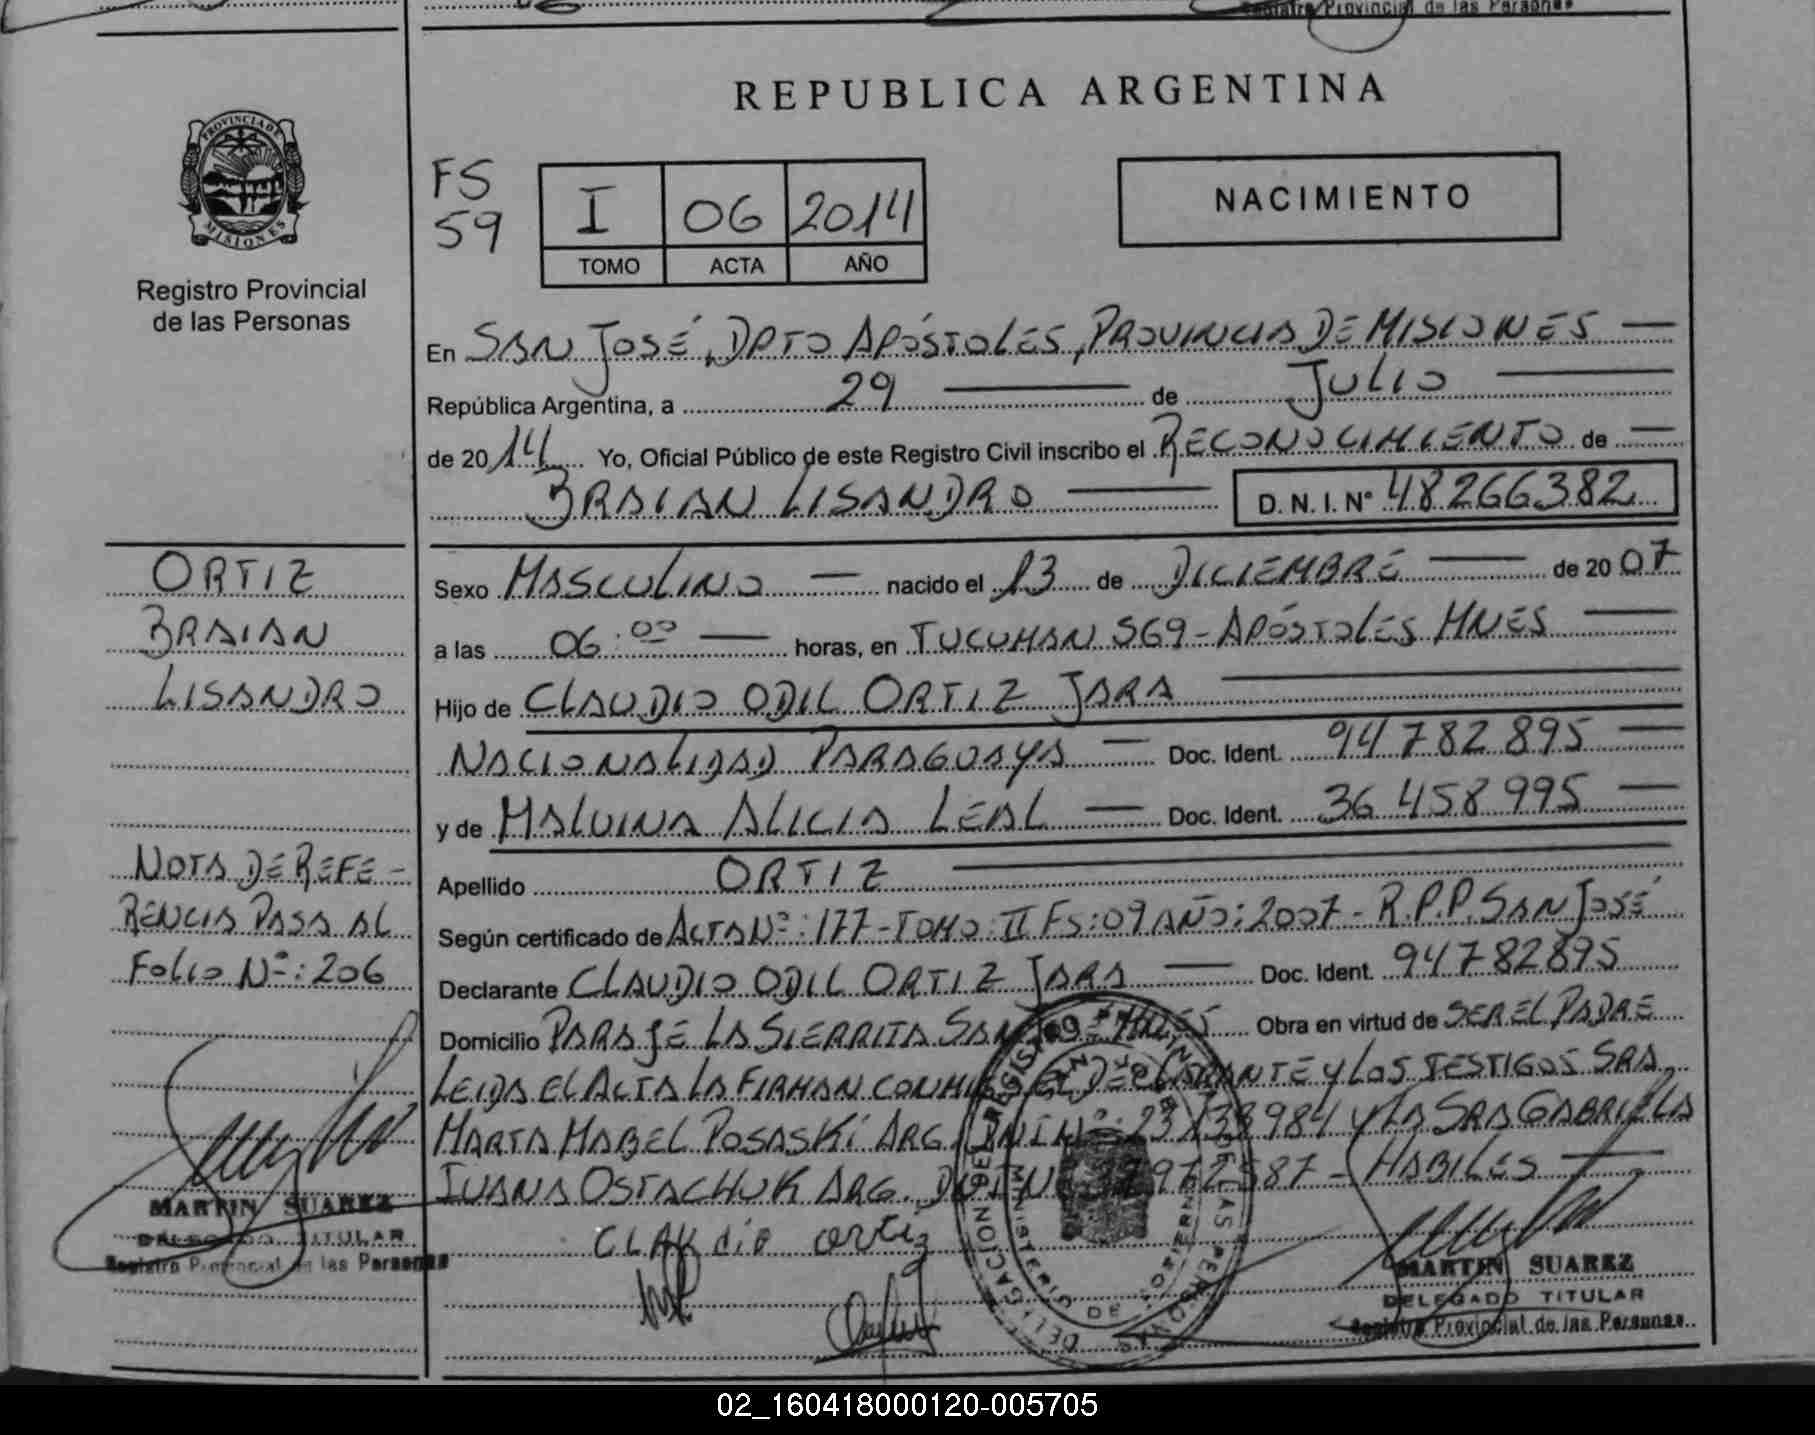 Registro Provincial de las Personas
REPUBLICA ARGENTINA
PROVINCIA DE
MISIONES
Registro Provincial
de las Personas
FS
59
I 06 2014
TOMO ACTA AÑO
NACIMIENTO
En SAN JOSÉ, DPTO APÓSTOLES, PROVINCIA DE MISIONES
República Argentina, a 29 de JULIO
de 2014 Yo, Oficial Público de este Registro Civil inscribo el RECONOCIMIENTO de
BRAIAN LISANDRO D.N.I. Nº 48266382
ORTIZ
BRAIAN
LISANDRO
NOTA DE REFE-
RENCIA PASA AL
FOLIO Nº: 206
MARTIN SUAREZ
DELEGADO TITULAR
Registro Provincial de las Personas
Sexo MASCULINO nacido el 13 de DICIEMBRE de 2007
a las 06:00 horas, en TUCUMAN 569 - APÓSTOLES MNES
Hijo de CLAUDIO ODIL ORTIZ JARA
NACIONALIDAD PARAGUAYA Doc. Ident. 94 782 895
y de MALVINA ALICIA LEAL Doc. Ident. 36 458 995
Apellido ORTIZ
Según certificado de ACTA Nº: 177 - TOMO: II FS: 09 AÑO: 2007 - R.P.P. SAN JOSÉ
Declarante CLAUDIO ODIL ORTIZ JARA Doc. Ident. 94782895
Domicilio PARAJE LA SIERRITA SAN JOSÉ - MNES Obra en virtud de SER EL PADRE
LEIDA EL ACTA LA FIRMAN CONMIGO EL DECLARANTE Y LOS TESTIGOS SRA
MARTA MABEL POSASKI ARG. DNI Nº: 984 Y LA SRA GABRIELA
JUANA OSTACHUK ARG. DNI Nº 972587 - HABILES
CLAUdio ortiz
MARTIN SUAREZ
DELEGADO TITULAR
Registro Provincial de las Personas
DELEGACION DEL REGISTRO PROVINCIAL DE LAS PERSONAS
MINISTERIO DE GOBIERNO
02_160418000120-005705